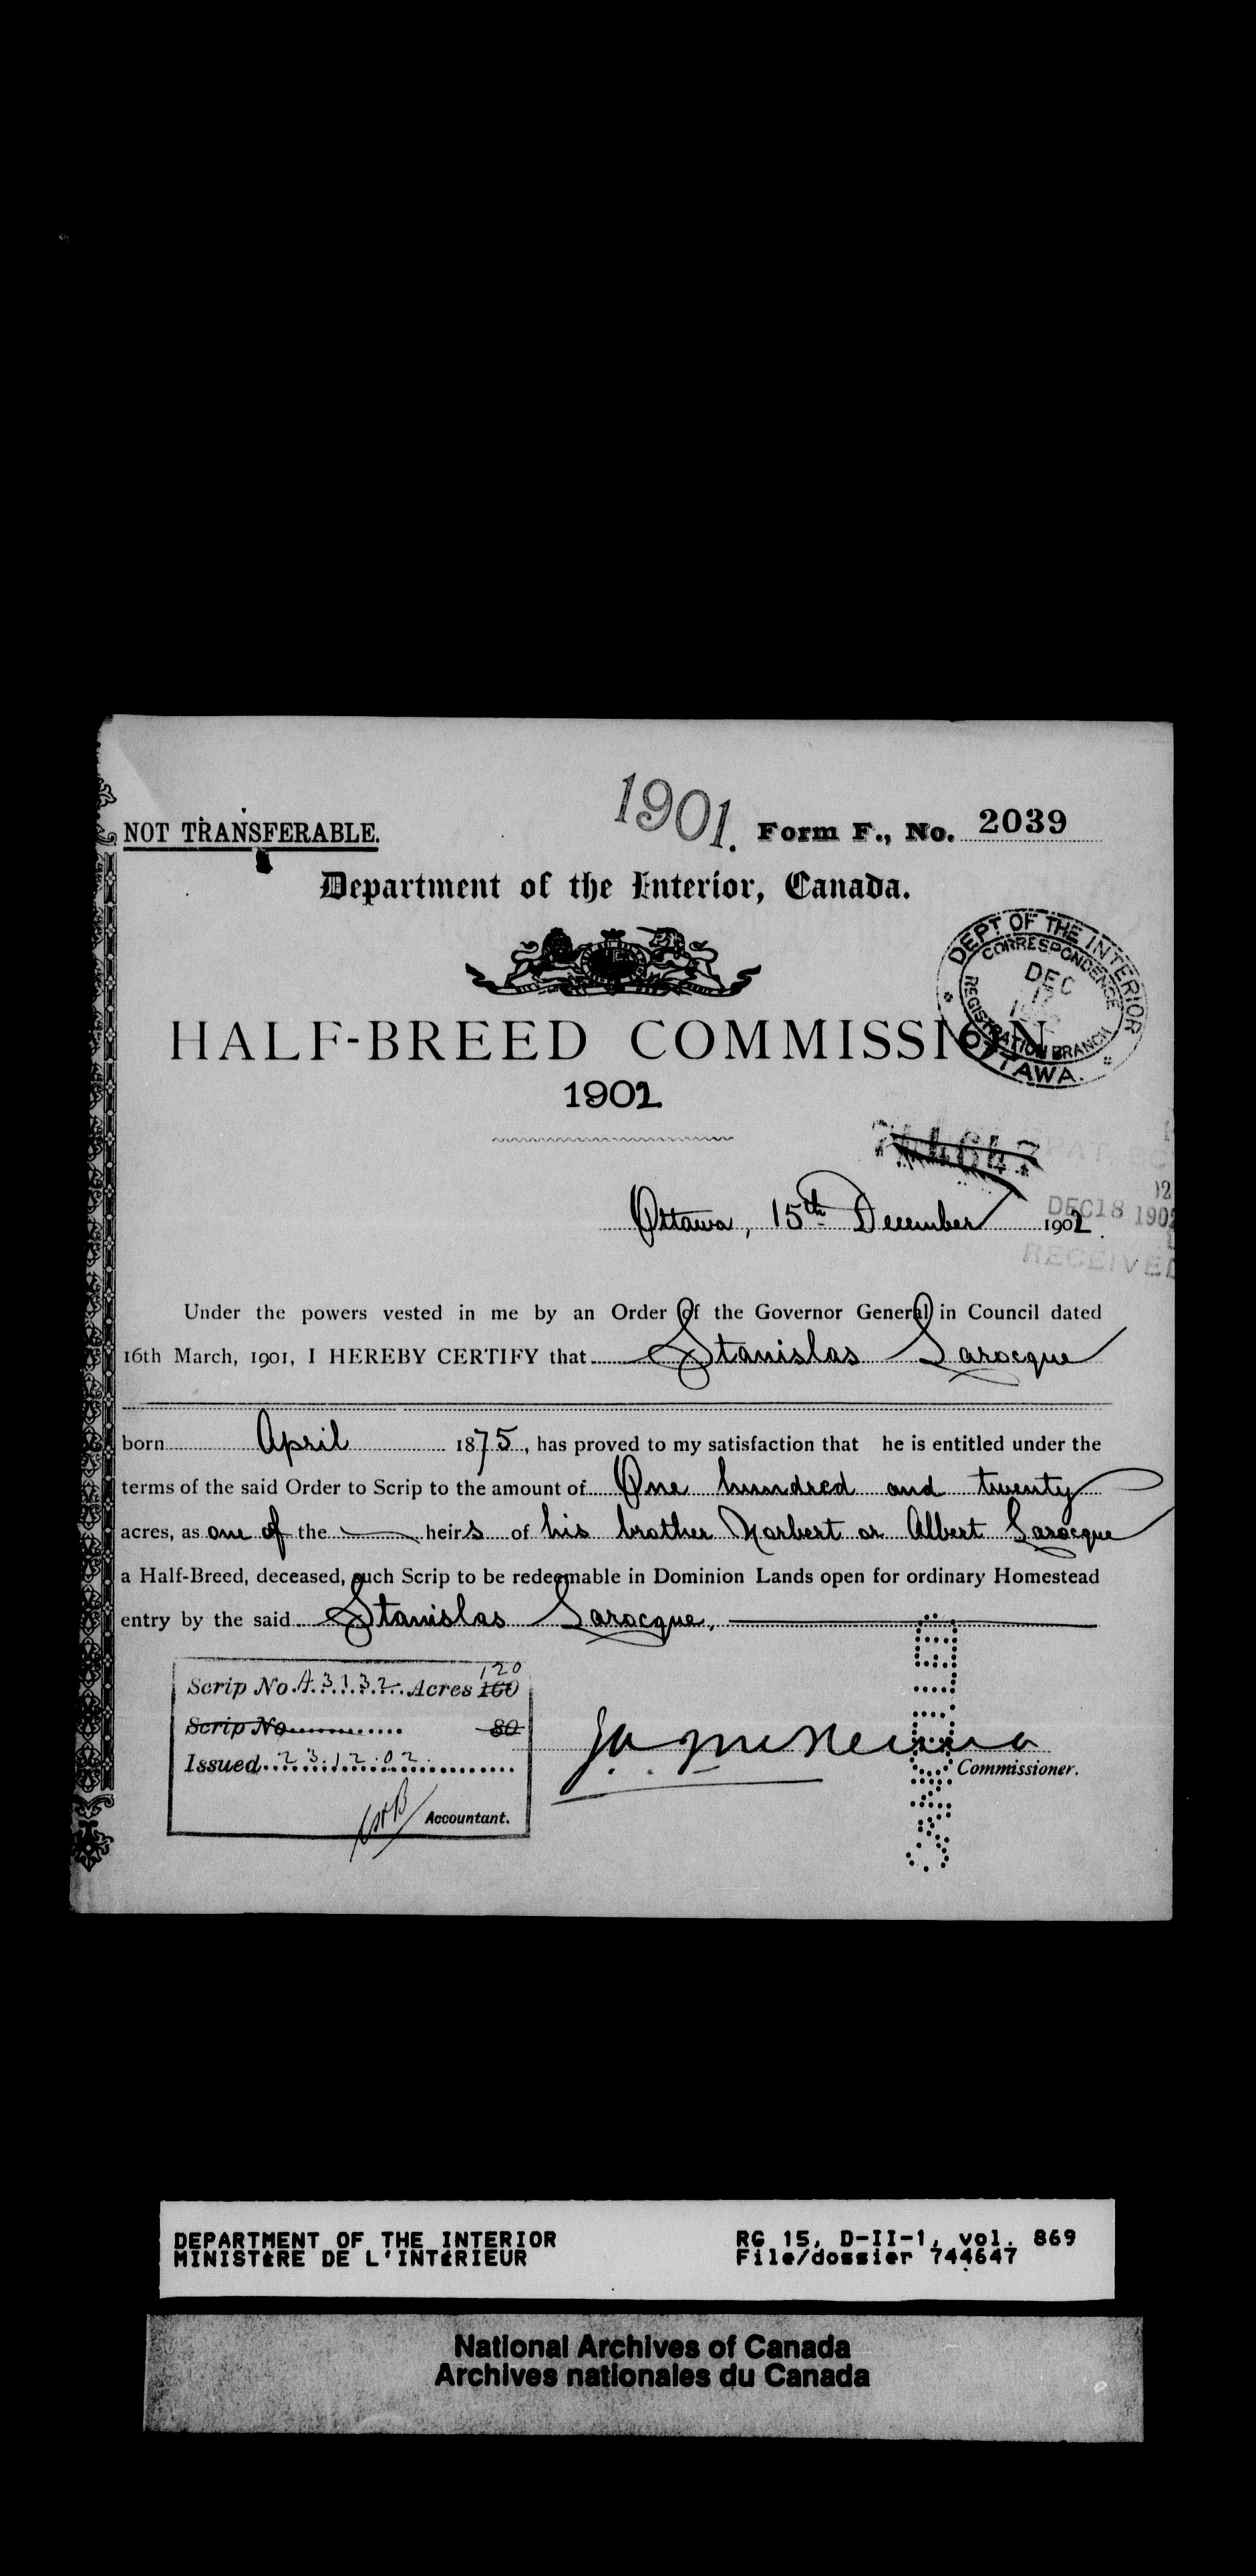 1901.
NOT TRANSFERABLE.
Form F., No. 2039
Department of the Interior, Canada.
DEPT OF THE INTERIOR
CORRESPONDENCE
DEC
17
REGISTRATION BRANCH
OTTAWA.
HALF-BREED COMMISSION
1902
744647
Ottawa, 15th December 1902.
DEC 18 1902
RECEIVED
Under the powers vested in me by an Order of the Governor General in Council dated
16th March, 1901, I HEREBY CERTIFY that Stanislas Larocque
born April 1875, has proved to my satisfaction that he is entitled under the
terms of the said Order to Scrip to the amount of One hundred and twenty
acres, as one of the heirs of his brother Norbert or Albert Larocque
a Half-Breed, deceased, such Scrip to be redeemable in Dominion Lands open for ordinary Homestead
entry by the said Stanislas Larocque,
Scrip No. A.3132 Acres 160 120
Scrip No. 80
Issued 23.12.02.
Accountant.
Commissioner.
DEPARTMENT OF THE INTERIOR
MINISTÈRE DE L'INTÉRIEUR
RG 15, D-II-1, vol. 869
File/dossier 744647
National Archives of Canada
Archives nationales du Canada